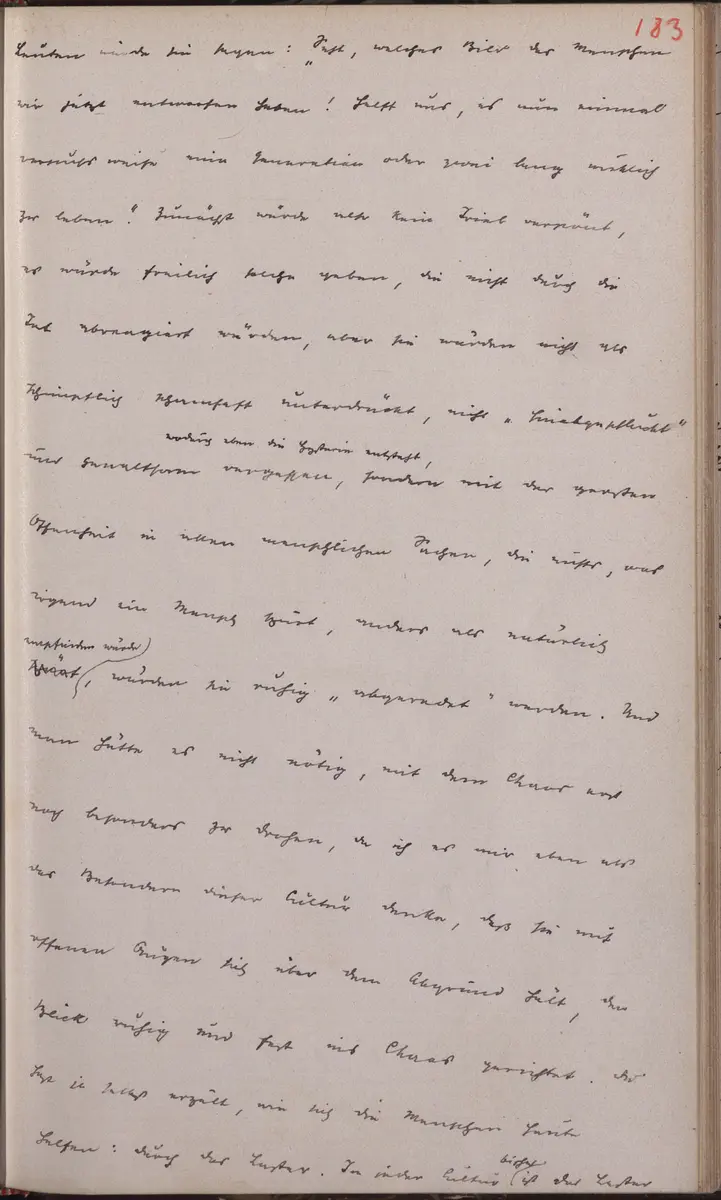 183
Leuten würde sie sagen: „Seht, welches Bild des Menschen
wir jetzt entworfen haben! Helft uns, es nun einmal
versuchsweise eine Generation oder zwei lang wirklich
zu leben“. Zunächst würde also kein Trieb verpönt,
es würde freilich solche geben, die nicht durch die
Tat abreagiert würden, aber sie würden nicht als
schimpflich schamhaft unterdrückt, nicht „hinabgeschluckt“
wodurch eben die Hysterie entsteht,
und gewaltsam vergessen, sondern mit der grossen
Offenheit in allen menschlichen Sachen, die nichts, was
irgend ein Mensch spürt, anders als natürlich
empfinden würde
spürt, würden sie ruhig „abgeredet“ werden. Und
man hätte es nicht nötig, mit dem Chaos erst
noch besonders zu drohen, da ich es mir eben als
das Besondere dieser Cultur denke, daß sie mit
offenen Augen sich über dem Abgrund hält, den
Blick ruhig und fest ins Chaos gerichtet. Du
hast ja selbst erzählt, wie sich die Menschen heute
helfen: durch das Laster. In jeder Cultur bisher ist das Laster